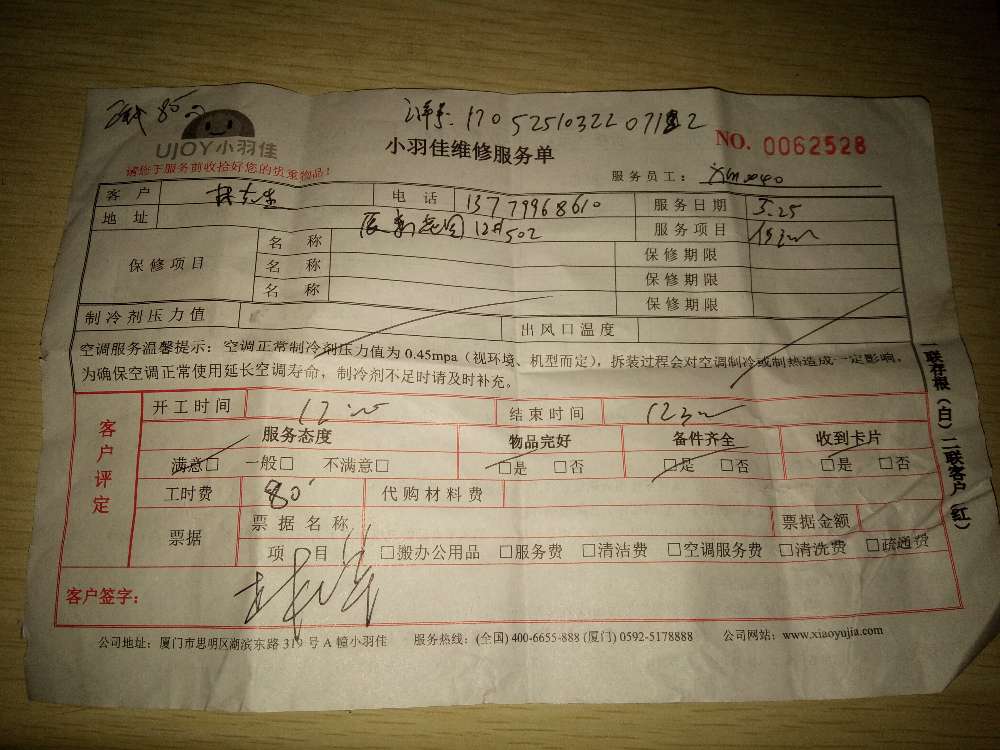 80元
UJOY小羽佳
请您于服务前收拾好您的贵重物品!
单号: 170
小羽佳维修服务单
NO. 0062528
服务员工:
客户 林先生 电话 13779968610 服务日期 5.25
地址 12#502 服务项目
保修项目 名称 保修期限
名称 保修期限
名称 保修期限
制冷剂压力值 出风口温度
空调服务温馨提示: 空调正常制冷剂压力值为 0.45mpa(视环境、机型而定),拆装过程会对空调制冷或制热造成一定影响,
为确保空调正常使用延长空调寿命,制冷剂不足时请及时补充。
一联存根(白) 二联客户(红)
客户评定
开工时间 结束时间
服务态度 物品完好 备件齐全 收到卡片
满意□ 一般□ 不满意□ □是 □否 □是 □否 □是 □否
工时费 80 代购材料费
票据 票据名称 票据金额
项目 □搬办公用品 □服务费 □清洁费 □空调服务费 □清洗费 □疏通费
客户签字:
公司地址: 厦门市思明区湖滨东路 319 号 A 幢小羽佳 服务热线: (全国) 400-6655-888 (厦门) 0592-5178888 公司网站: www.xiaoyujia.com